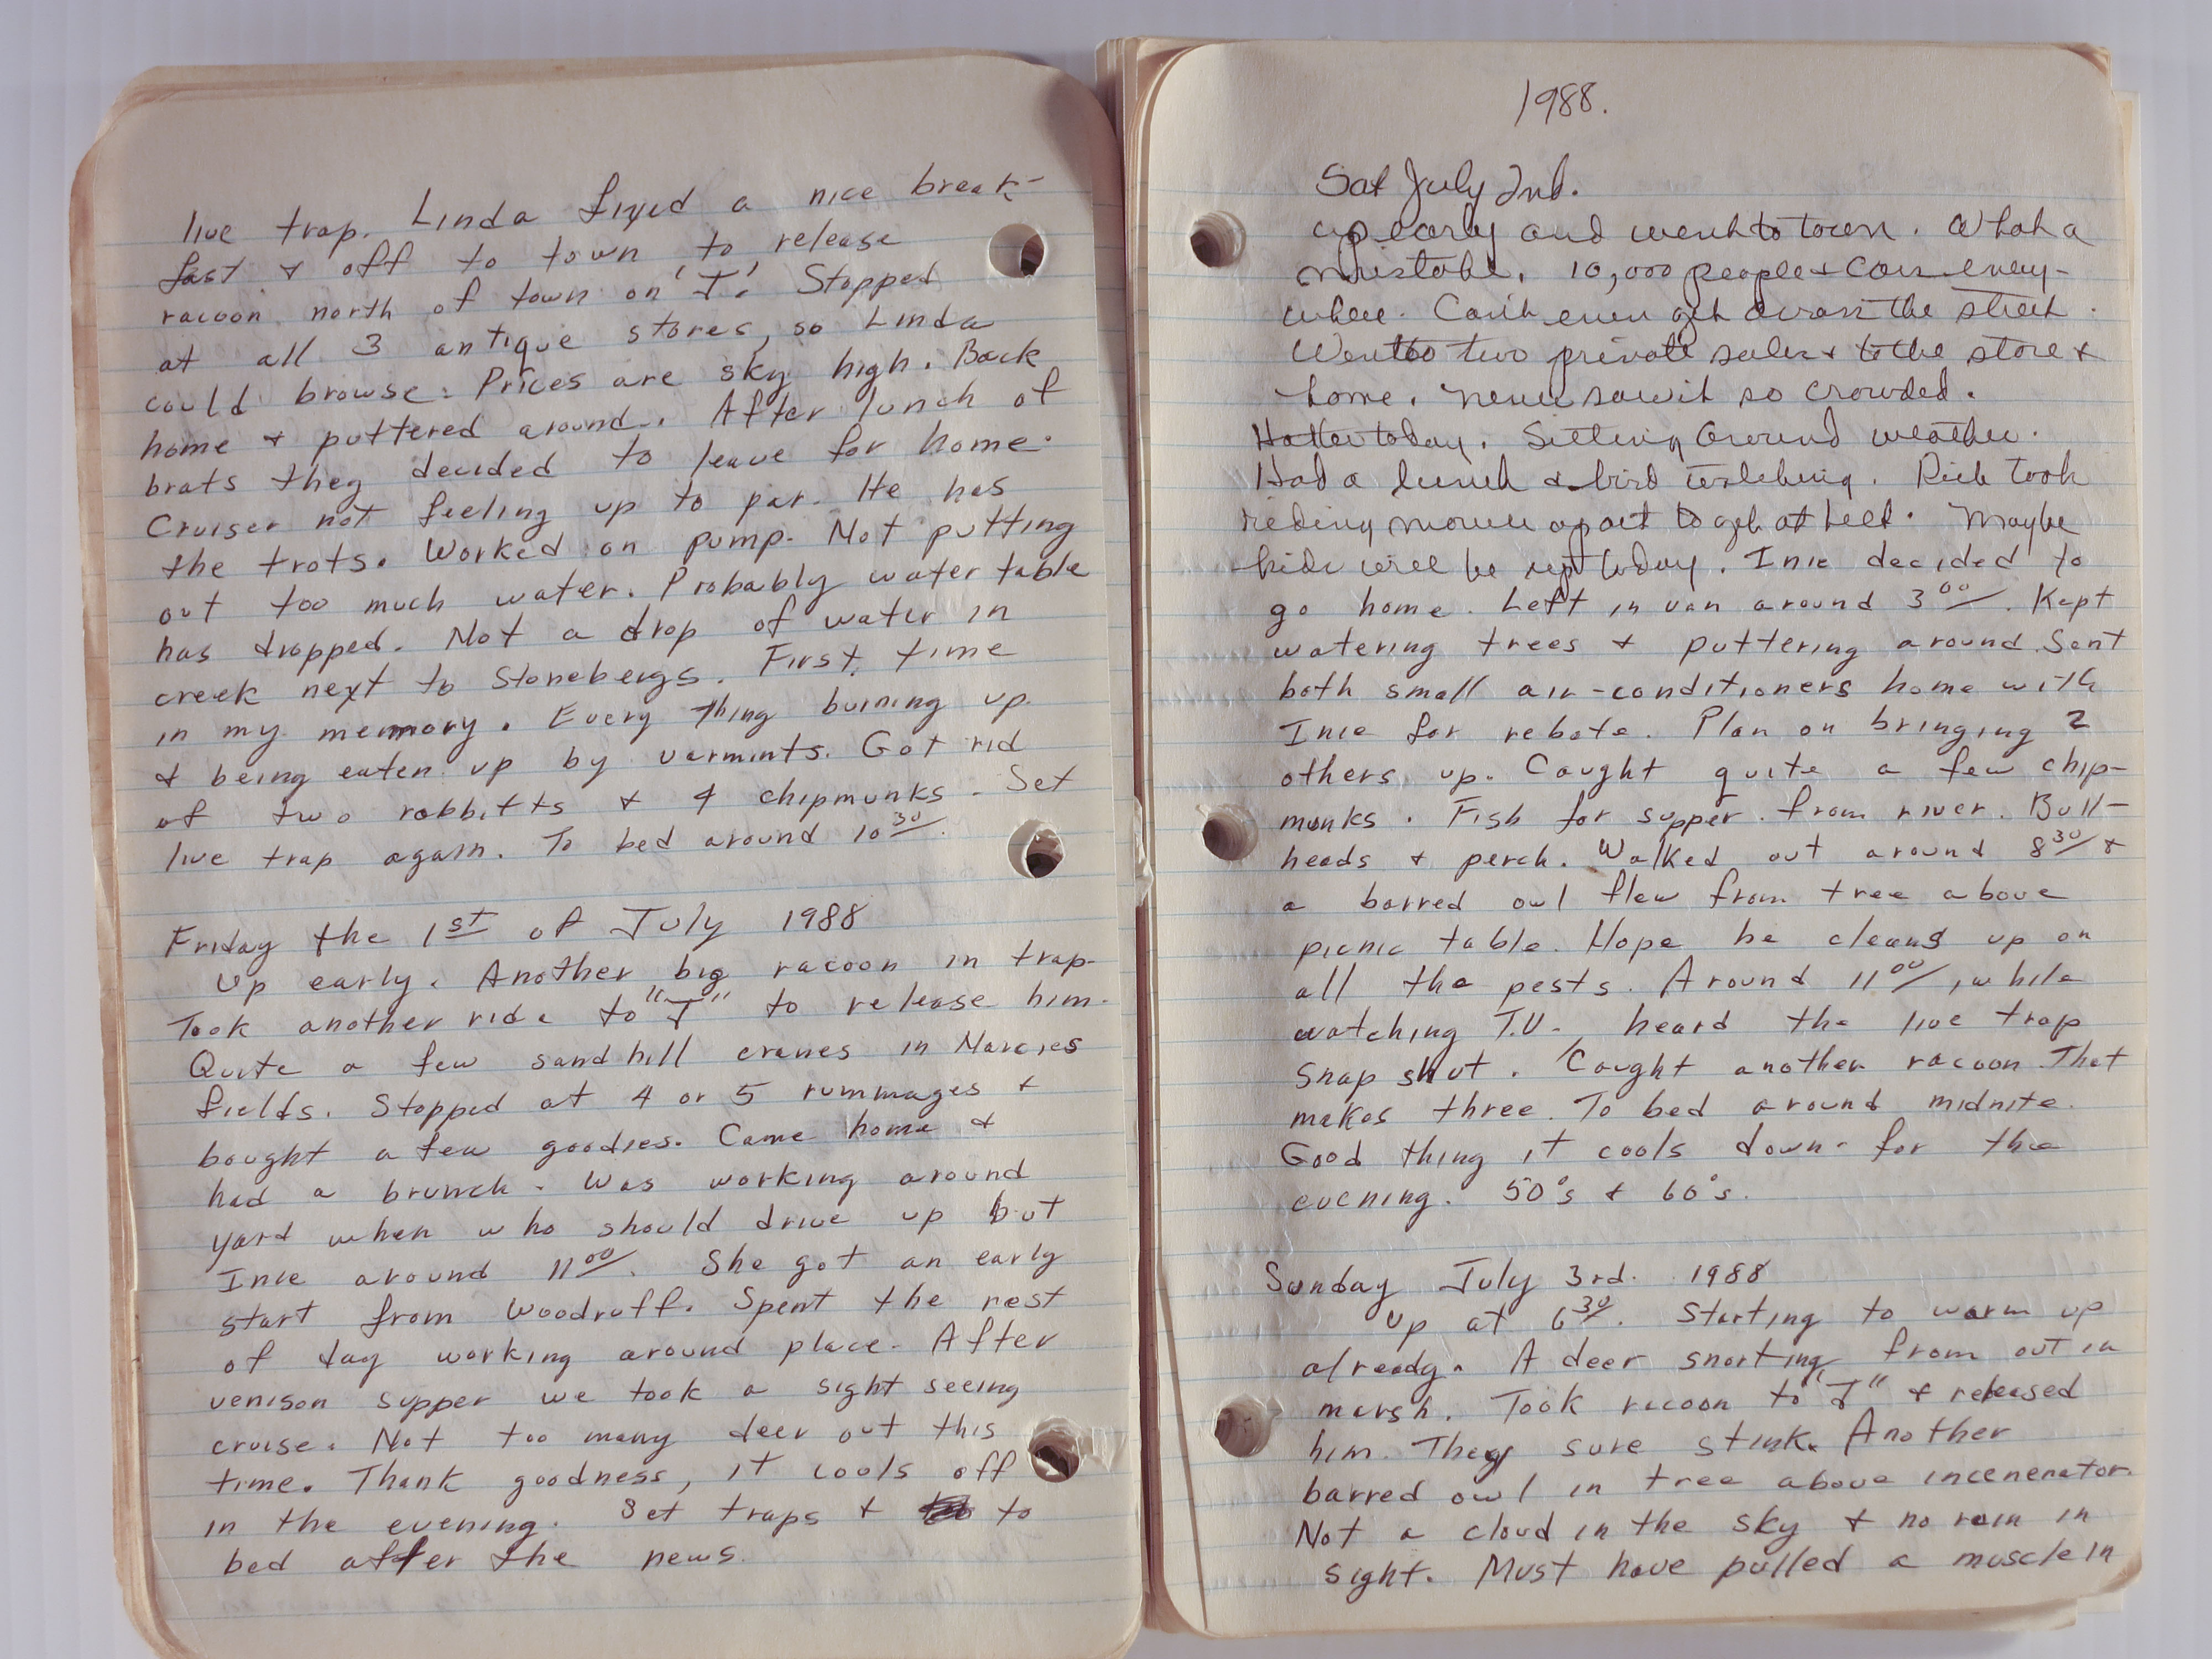 live trap. Linda fixed a nice break-
fast & off to town to release
racoon north of town on 'J'. Stopped
at all 3 antique stores, so Linda
could browse. Prices are sky high. Back
home & puttered around. After lunch of
brats they decided to leave for home.
Cruiser not feeling up to par. He has
the trots. Worked on pump. Not putting
out too much water. Probably water table
has dropped. Not a drop of water in
creek next to Stonebergs. First time
in my memory. Every thing burning up
& being eaten up by varmints. Got rid
of two rabbitts & 4 chipmunks. Set
live trap again. To bed around 10 30.
Friday the 1st of July 1988
Up early. Another big racoon in trap.
Took another ride to "J" to release him.
Quite a few sandhill cranes in Marcies
fields. Stopped at 4 or 5 rummages &
bought a few goodies. Came home &
had a brunch. Was working around
yard when who should drive up but
Inie around 11 00. She got an early
start from Woodruff. Spent the rest
of day working around place. After
venison supper we took a sight seeing
cruise. Not too many deer out this
time. Thank goodness, it cools off
in the evening. Set traps & to
bed after the news.
1988.
Sat July 2nd.
up early and went to town. What a
mistake. 10,000 people & cars every-
where. Can't even get across the street.
Went to two private sales & to the store &
home. never saw it so crowded.
Hotter today. Sitting around weather.
Had a lunch & bird watching. Rich took
riding mower apart to get at belt. Maybe
kids will be up today. Inie decided to
go home. Left in van around 3 00. Kept
watering trees & puttering around. Sent
both small air-conditioners home with
Inie for rebate. Plan on bringing 2
others up. Caught quite a few chip-
munks. Fish for supper from river. Bull-
heads & perch. Walked out around 8 30 &
a barred owl flew from tree above
picnic table. Hope he cleans up on
all the pests. Around 11 00, while
watching T.V. heard the live trap
snap shut. Caught another racoon. That
makes three. To bed around midnite.
Good thing it cools down for the
evening. 50's & 60's.
Sunday July 3rd. 1988
Up at 6 30. Starting to warm up
already. A deer snorting from out in
marsh. Took racoon to "J" & released
him. They sure stink. Another
barred owl in tree above incenerator.
Not a cloud in the sky & no rain in
sight. Must have pulled a muscle in